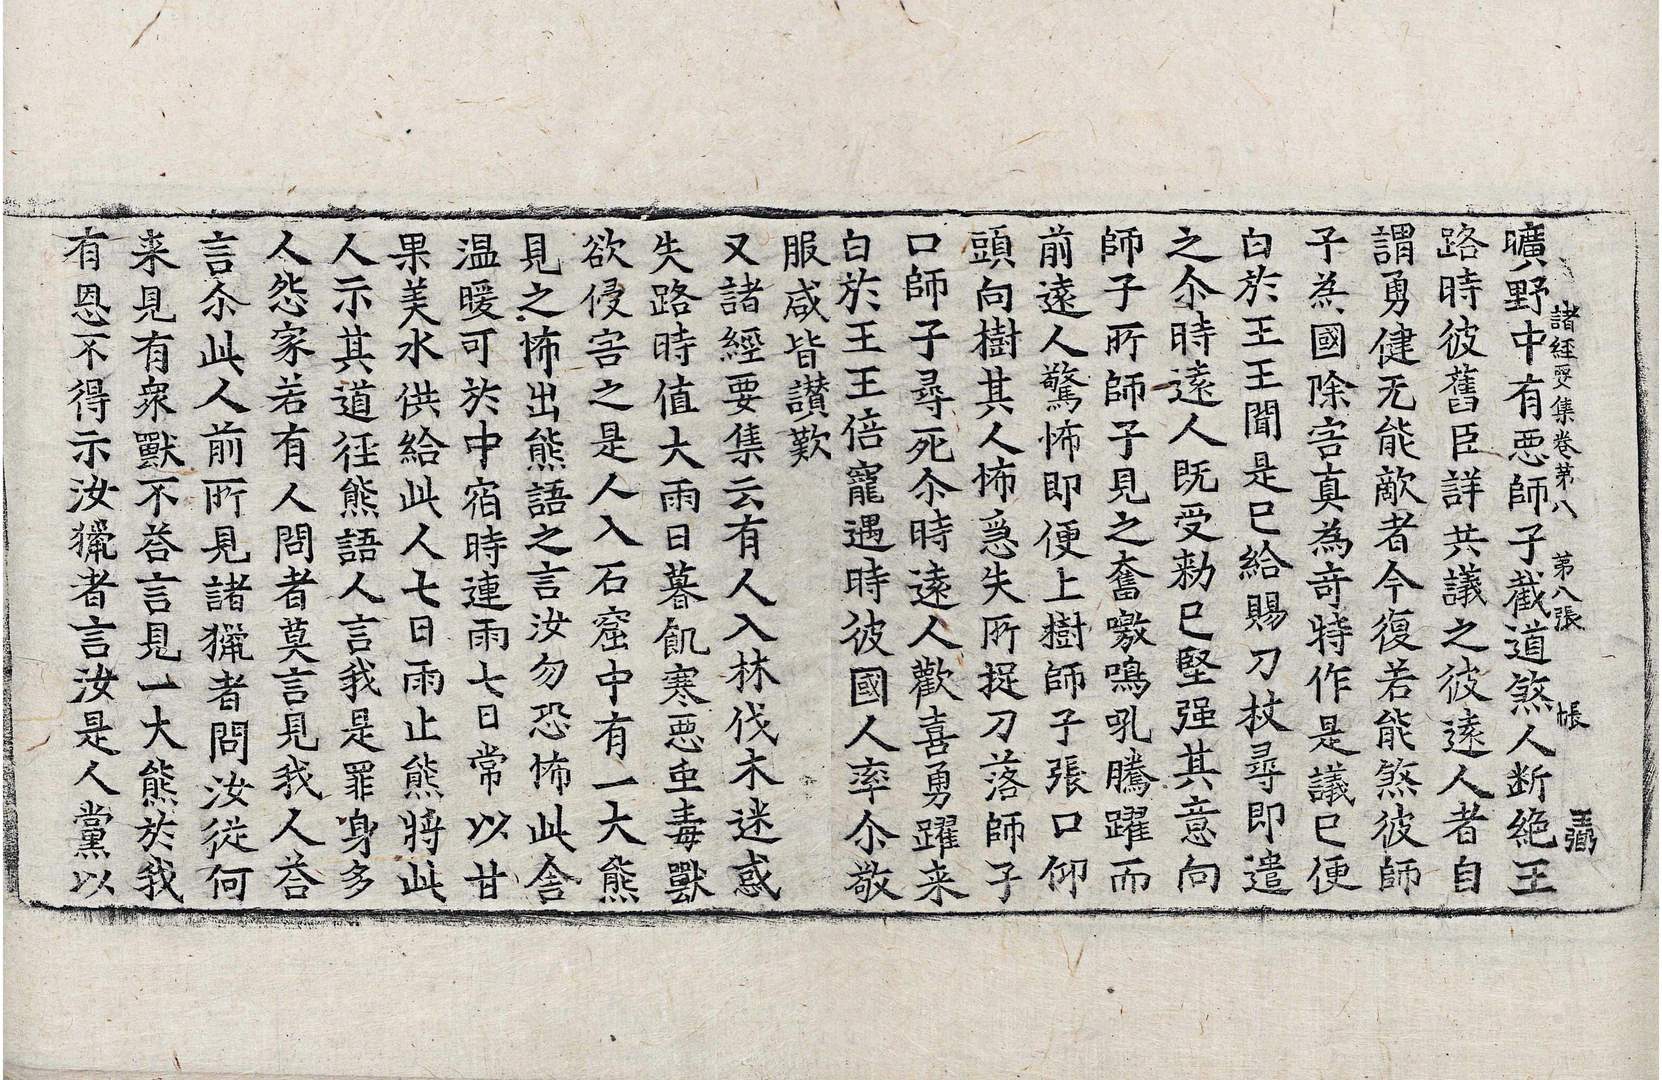 諸經要集卷第八　第八張　帳　玉弼
曠野中有惡師子截道煞人断絶王
路時彼舊臣詳共議之彼遠人者自
謂勇健无能敵者今復若能煞彼師
子為國除害真為竒特作是議已便
白於王王聞是已給賜刀杖尋即遣
之尒時遠人既受勑已堅强其意向
師子所師子見之奮噭鳴吼騰躍而
前遠人驚怖即便上樹師子張口仰
頭向樹其人怖急失所捉刀落師子
口師子尋死尒時遠人歡喜勇躍来
白於王王倍寵遇時彼國人率尒敬
服咸皆讃歎
又諸經要集云有人入林伐木迷惑
失路時值大雨日暮飢寒惡虫毒獸
欲侵害之是人入石窟中有一大熊
見之怖出熊語之言汝勿恐怖此舎
温暖可於中宿時連雨七日常以甘
果美水供給此人七日雨止熊將此
人示其道徑熊語人言我是罪身多
人怨家若有人問者莫言見我人荅
言尒此人前所見諸獵者問汝從何
来見有衆獸不荅言見一大熊於我
有恩不得示汝獵者言汝是人黨以